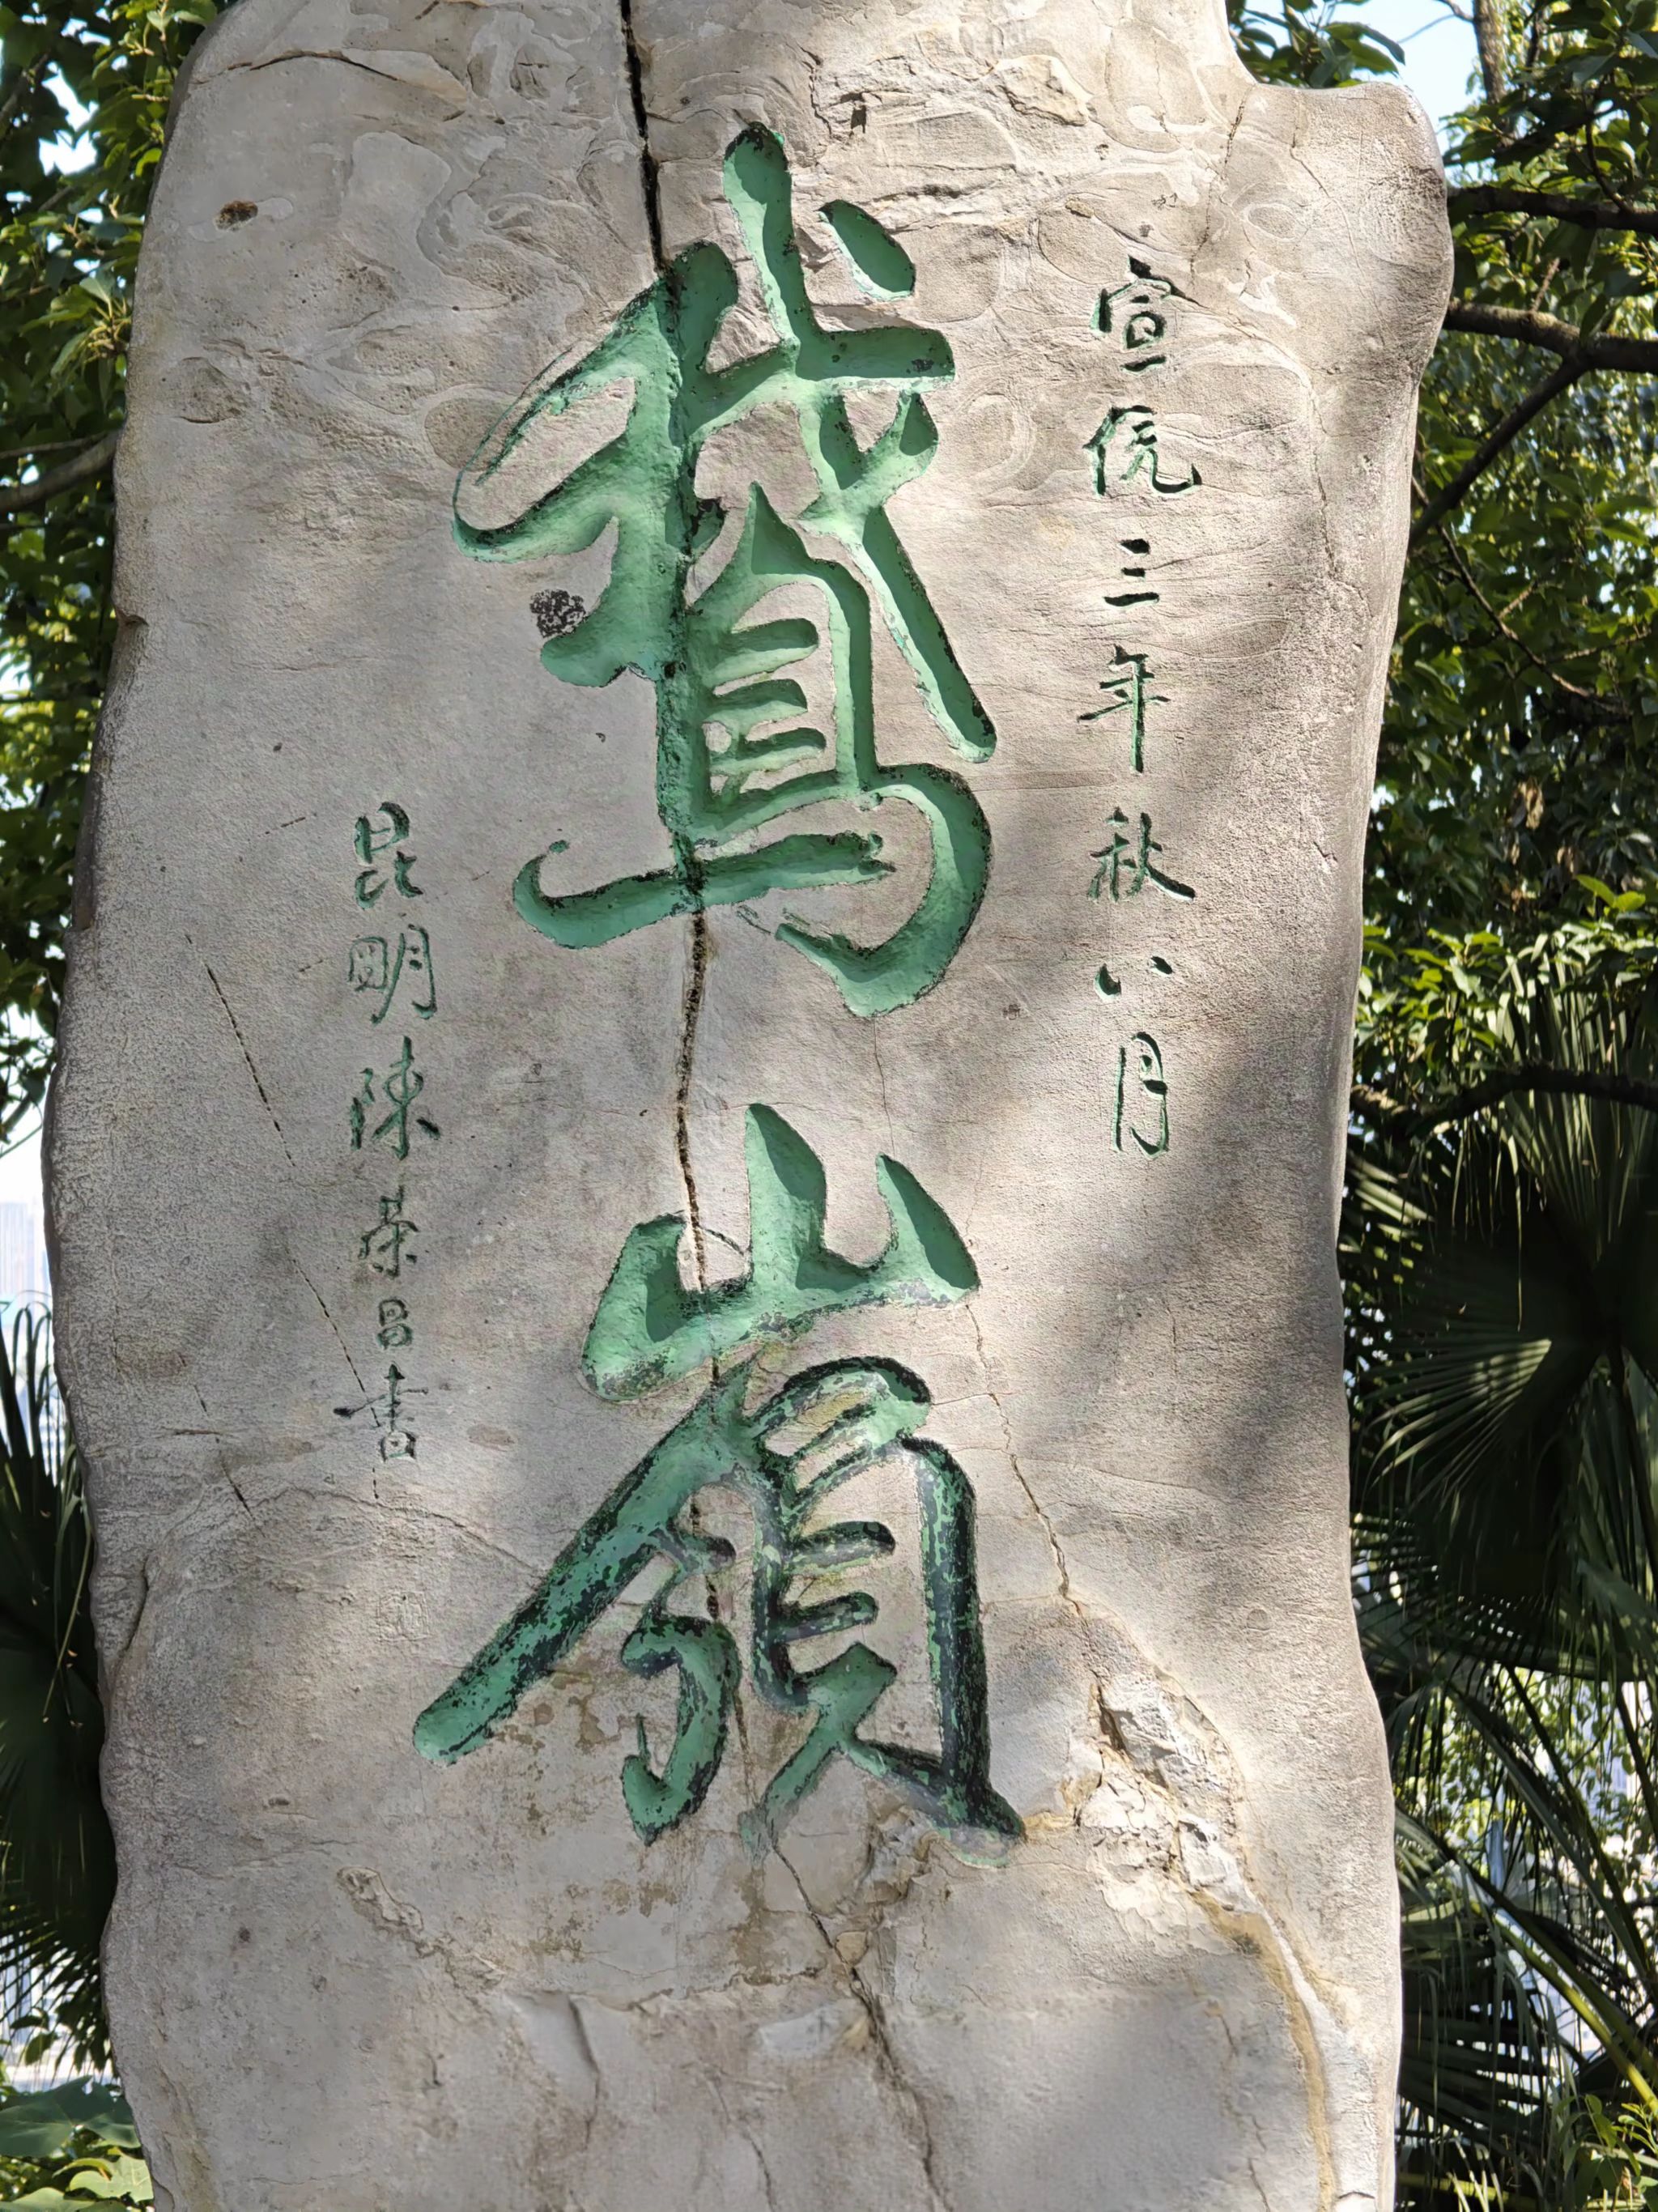 宣統三年秋八月
鵞嶺
昆明陳荣昌書